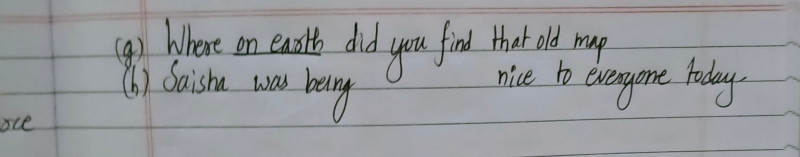 (g) Where on earth did you find that old map
(h) Saisha was being nice to everyone today